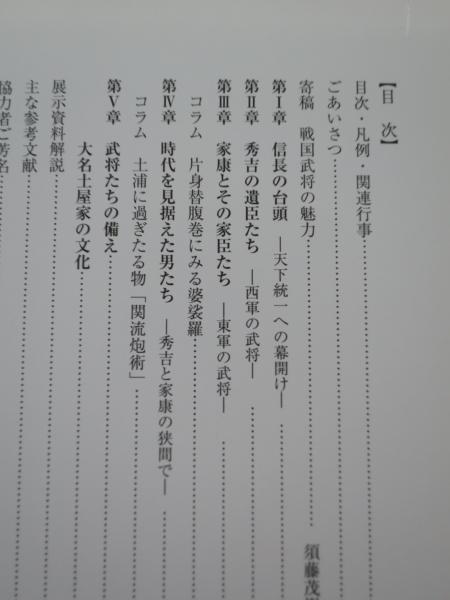 【目　次】
目次・凡例・関連行事
ごあいさつ
寄稿　戦国武将の魅力 須藤茂
第Ⅰ章　信長の台頭　―天下統一への幕開け―
第Ⅱ章　秀吉の遺臣たち　―西軍の武将―
第Ⅲ章　家康とその家臣たち　―東軍の武将―
コラム　片身替腹巻にみる婆裟羅
第Ⅳ章　時代を見据えた男たち　―秀吉と家康の狭間で―
コラム　土浦に過ぎたる物「関流炮術」
第Ⅴ章　武将たちの備え
大名土屋家の文化
展示資料解説
主な参考文献
協力者ご芳名